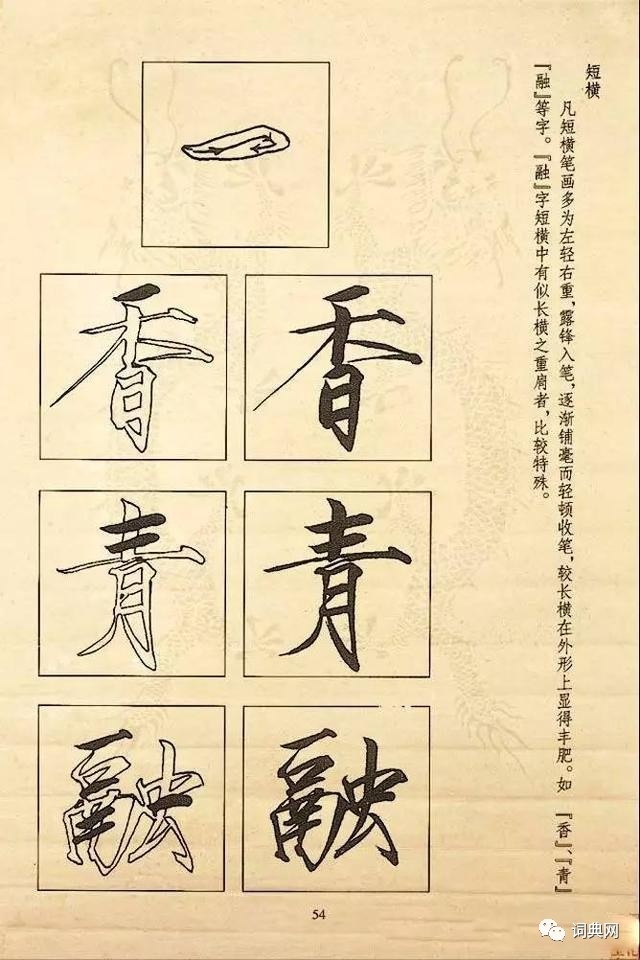 短横
凡短横笔画多为左轻右重，露锋入笔，逐渐铺毫而轻顿收笔，较长横在外形上显得丰肥。如『香』、『青』
『融』等字。『融』字短横中有似长横之重肩者，比较特殊。
一
香 香
青 青
融 融
54
词典网